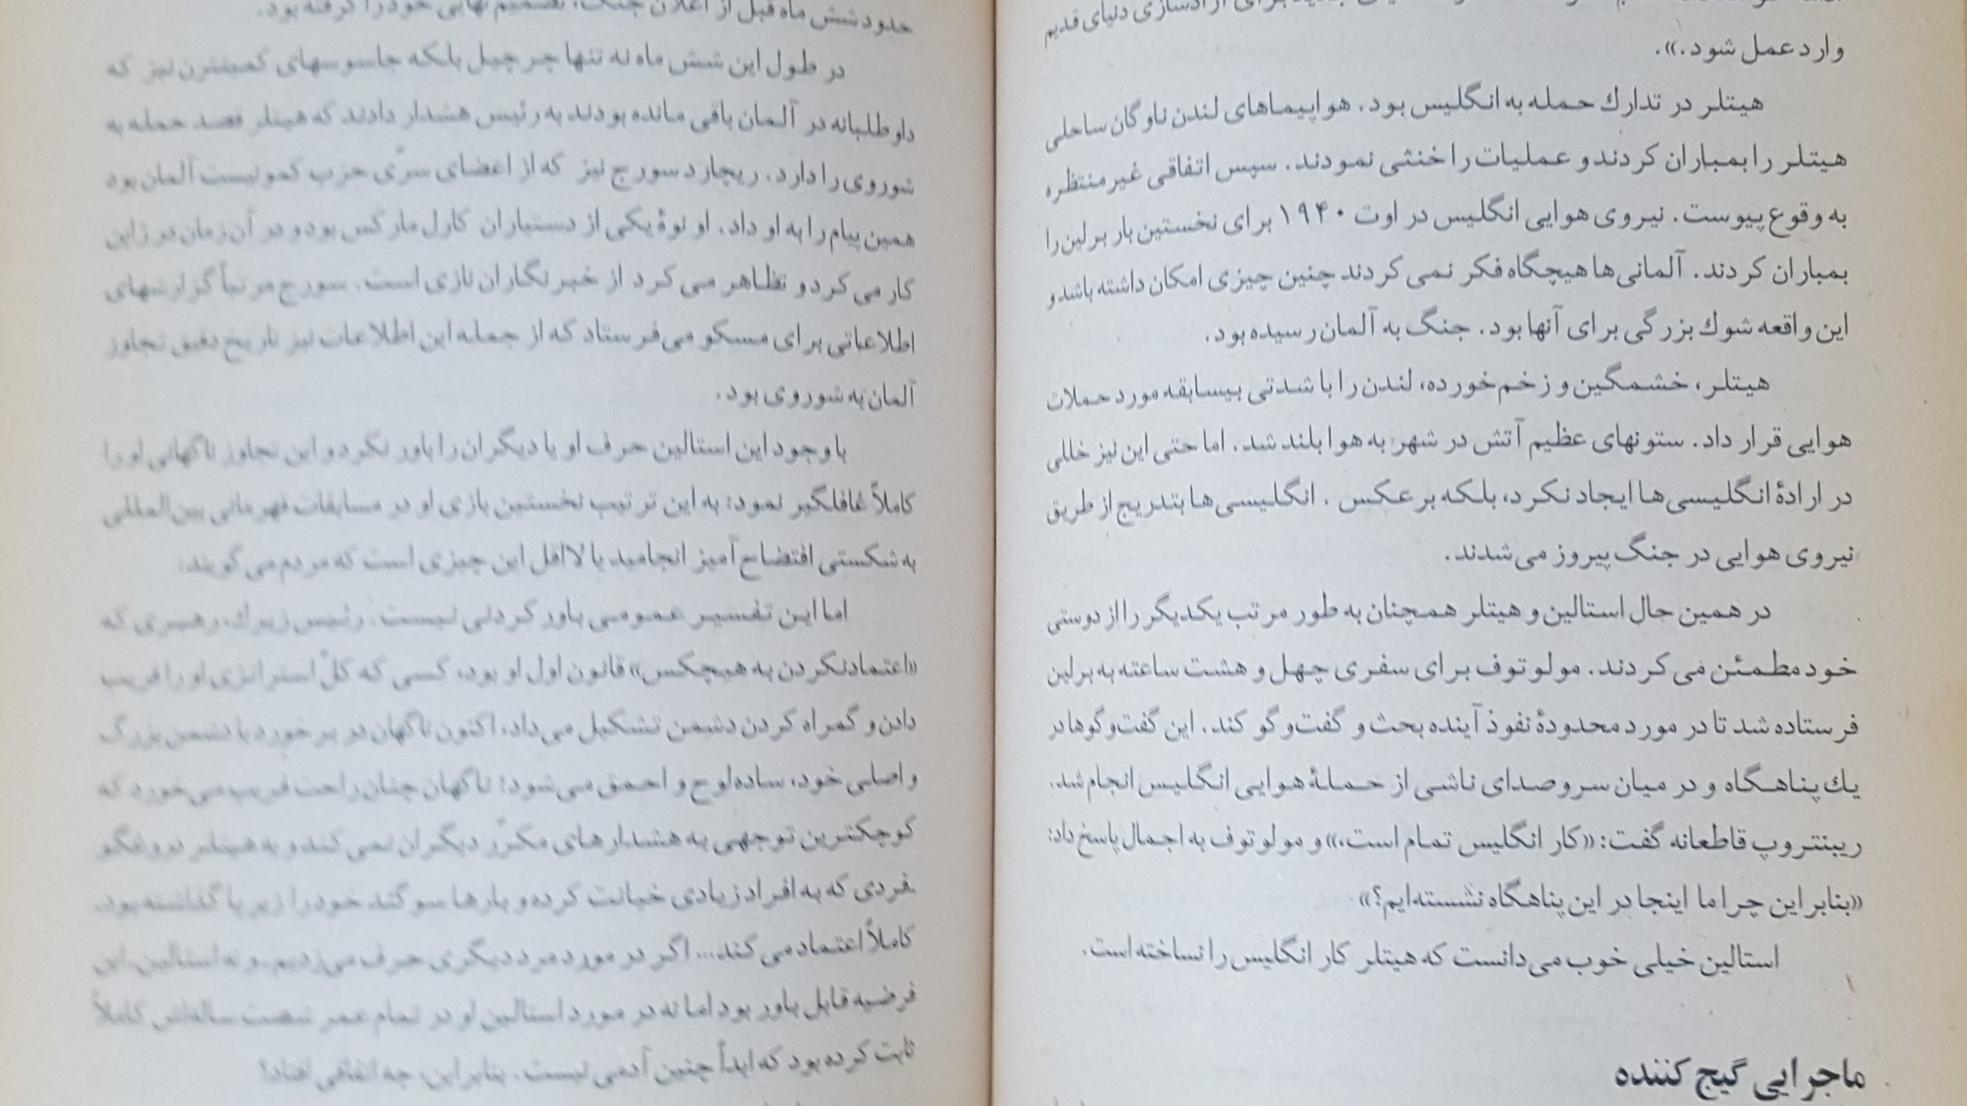 دنیای قدیم
وارد عمل شود.».
هیتلر در تدارك حمله به انگلیس بود. هواپیماهای لندن ناوگان ساحلی
هیتلر را بمباران کردند و عملیات را خنثی نمودند. سپس اتفاقی غیرمنتظره
به وقوع پیوست. نیروی هوایی انگلیس در اوت ۱۹۴۰ برای نخستین بار برلین را
بمباران کردند. آلمانی‌ها هیچگاه فکر نمی‌کردند چنین چیزی امکان داشته باشد و
این واقعه شوك بزرگی برای آنها بود. جنگ به آلمان رسیده بود.
هیتلر، خشمگین و زخم‌خورده، لندن را با شدتی بیسابقه مورد حملات
هوایی قرار داد. ستونهای عظیم آتش در شهر به هوا بلند شد. اما حتی این نیز خللی
در ارادهٔ انگلیسی‌ها ایجاد نکرد، بلکه برعکس. انگلیسی‌ها بتدریج از طریق
نیروی هوایی در جنگ پیروز می‌شدند.
در همین حال استالین و هیتلر همچنان به طور مرتب یکدیگر را از دوستی
خود مطمئن می‌کردند. مولوتوف برای سفری چهل و هشت ساعته به برلین
فرستاده شد تا در مورد محدودهٔ نفوذ آینده بحث و گفت‌وگو کند. این گفت‌وگوها در
یك پناهگاه و در میان سروصدای ناشی از حملهٔ هوایی انگلیس انجام شد.
ریبنتروپ قاطعانه گفت: «کار انگلیس تمام است.» و مولوتوف به اجمال پاسخ داد:
«بنابراین چرا ما اینجا در این پناهگاه نشسته‌ایم؟»
استالین خیلی خوب می‌دانست که هیتلر کار انگلیس را نساخته است.
ماجرایی گیج کننده
حدود شش ماه قبل از اعلان جنگ، تصمیم نهایی خود را گرفته بود.
در طول این شش ماه نه تنها چرچیل بلکه جاسوسهای کمینترن نیز که
داوطلبانه در آلمان باقی مانده بودند به رئیس هشدار دادند که هیتلر قصد حمله به
شوروی را دارد. ریچارد سورج نیز که از اعضای سرّی حزب کمونیست آلمان بود
همین پیام را به او داد. او نوهٔ یکی از دستیاران کارل مارکس بود و در آن زمان در ژاپن
کار می‌کرد و تظاهر می‌کرد از خبرنگاران نازی است. سورج مرتباً گزارشهای
اطلاعاتی برای مسکو می‌فرستاد که از جمله این اطلاعات نیز تاریخ دقیق تجاوز
آلمان به شوروی بود.
با وجود این استالین حرف او یا دیگران را باور نکرد و این تجاوز ناگهانی او را
کاملاً غافلگیر نمود: به این ترتیب نخستین بازی او در مسابقات قهرمانی بین‌المللی
به شکستی افتضاح‌آمیز انجامید یا لااقل این چیزی است که مردم می‌گویند.
اما این تفسیر عمومی باور کردنی نیست. رئیس زیرك، رهبری که
«اعتمادنکردن به هیچکس» قانون اول او بود، کسی که کلّ استراتژی او را فریب
دادن و گمراه کردن دشمن تشکیل می‌داد، اکنون ناگهان در برخورد با دشمن بزرگ
و اصلی خود، ساده‌لوح و احمق می‌شود؛ ناگهان چنان راحت فریب می‌خورد که
کوچکترین توجهی به هشدارهای مکرّر دیگران نمی‌کند و به هیتلر دروغگو
فردی که به افراد زیادی خیانت کرده و بارها سوگند خود را زیر پا گذاشته بود.
کاملاً اعتماد می‌کند... اگر در مورد مرد دیگری حرف می‌زدیم ـ و نه استالین ـ این
فرضیه قابل باور بود اما نه در مورد استالین او در تمام عمر شصت ساله‌اش کاملاً
ثابت کرده بود که ابداً چنین آدمی نیست. بنابراین، چه اتفاقی افتاد؟